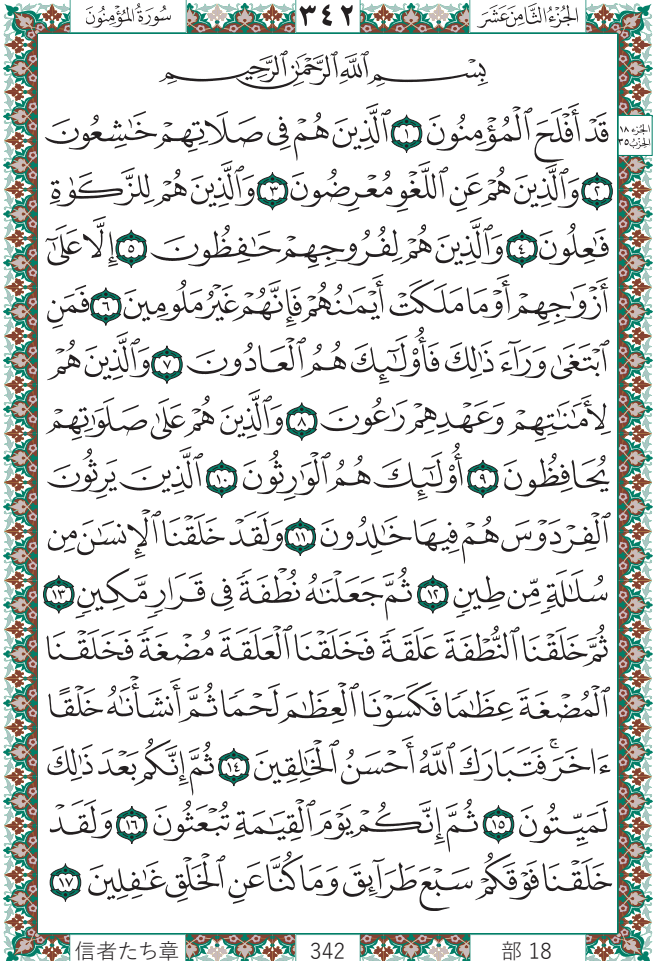 الجُزْءُ الثَّامِنَ عَشَرَ ٣٤٢ سُورَةُ المُؤْمِنُونَ
بِسْمِ ٱللَّهِ ٱلرَّحْمَٰنِ ٱلرَّحِيمِ
قَدْ أَفْلَحَ ٱلْمُؤْمِنُونَ ١ ٱلَّذِينَ هُمْ فِي صَلَاتِهِمْ خَٰشِعُونَ
الجزء ١٨
الحزب ٣٥
٢ وَٱلَّذِينَ هُمْ عَنِ ٱللَّغْوِ مُعْرِضُونَ ٣ وَٱلَّذِينَ هُمْ لِلزَّكَوٰةِ
فَٰعِلُونَ ٤ وَٱلَّذِينَ هُمْ لِفُرُوجِهِمْ حَٰفِظُونَ ٥ إِلَّا عَلَىٰٓ
أَزْوَٰجِهِمْ أَوْ مَا مَلَكَتْ أَيْمَٰنُهُمْ فَإِنَّهُمْ غَيْرُ مَلُومِينَ ٦ فَمَنِ
ٱبْتَغَىٰ وَرَآءَ ذَٰلِكَ فَأُو۟لَٰٓئِكَ هُمُ ٱلْعَادُونَ ٧ وَٱلَّذِينَ هُمْ
لِأَمَٰنَٰتِهِمْ وَعَهْدِهِمْ رَٰعُونَ ٨ وَٱلَّذِينَ هُمْ عَلَىٰ صَلَوَٰتِهِمْ
يُحَافِظُونَ ٩ أُو۟لَٰٓئِكَ هُمُ ٱلْوَٰرِثُونَ ١٠ ٱلَّذِينَ يَرِثُونَ
ٱلْفِرْدَوْسَ هُمْ فِيهَا خَٰلِدُونَ ١١ وَلَقَدْ خَلَقْنَا ٱلْإِنسَٰنَ مِن
سُلَٰلَةٍ مِّن طِينٍ ١٢ ثُمَّ جَعَلْنَٰهُ نُطْفَةً فِي قَرَارٍ مَّكِينٍ ١٣
ثُمَّ خَلَقْنَا ٱلنُّطْفَةَ عَلَقَةً فَخَلَقْنَا ٱلْعَلَقَةَ مُضْغَةً فَخَلَقْنَا
ٱلْمُضْغَةَ عِظَٰمًا فَكَسَوْنَا ٱلْعِظَٰمَ لَحْمًا ثُمَّ أَنشَأْنَٰهُ خَلْقًا
ءَاخَرَۚ فَتَبَارَكَ ٱللَّهُ أَحْسَنُ ٱلْخَٰلِقِينَ ١٤ ثُمَّ إِنَّكُم بَعْدَ ذَٰلِكَ
لَمَيِّتُونَ ١٥ ثُمَّ إِنَّكُمْ يَوْمَ ٱلْقِيَٰمَةِ تُبْعَثُونَ ١٦ وَلَقَدْ
خَلَقْنَا فَوْقَكُمْ سَبْعَ طَرَآئِقَ وَمَا كُنَّا عَنِ ٱلْخَلْقِ غَٰفِلِينَ ١٧
信者たち章 342 部 18